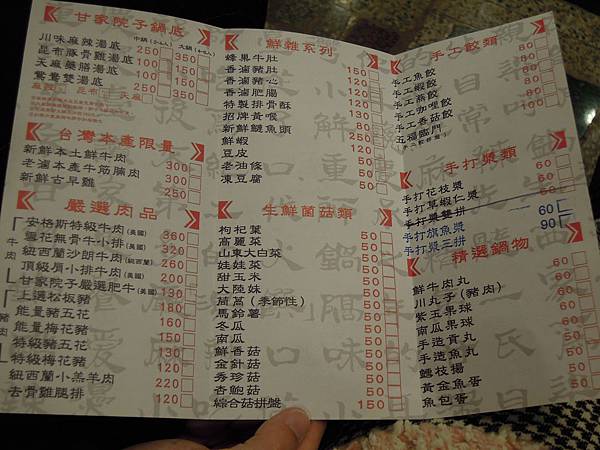 甘家院子鍋底
中鍋(2-3人) 大鍋(4-6人)
川味麻辣湯底 250 350
昆布豚骨雞湯底 100 150
天麻藥膳湯底 100 150
鴛鴦雙湯底 250 350
麻辣 昆布 天麻
台灣本產限量
新鮮本土鮮牛肉 300
老滷本產牛筋腩肉 300
新鮮古早雞 250
嚴選肉品
牛肉
安格斯特級牛肉(美國) 360
雪花無骨牛小排(美國) 320
紐西蘭沙朗牛肉(紐西蘭) 260
頂級肩小排牛肉(美國) 260
甘家院子嚴選肥牛(美國) 130
豬肉
上選松板豬 180
能量豬五花 160
能量梅花豬 160
特級豬五花 130
特級梅花豬 130
紐西蘭小羔羊肉 220
去骨雞腿排 120
鮮雜系列
蜂巢牛肚 150
香滷豬肚 120
香滷豬心
香滷肥腸
特製排骨酥
招牌黃喉
新鮮鰱魚頭
鮮蝦
豆皮
老油條 50
凍豆腐 50
生鮮菌菇類
枸杞葉 50
高麗菜 50
山東大白菜 50
娃娃菜 50
甜玉米 50
大陸妹 50
茼萵(季節性) 50
馬鈴薯 50
冬瓜 50
南瓜 50
鮮香菇 50
金針菇 50
秀珍菇 50
杏鮑菇 50
綜合菇拼盤 150
手工餃類
手工魚餃 80
手工蝦餃 80
手工燕餃 80
手工咖哩餃 80
手工香菇餃 80
五福臨門 100
手打漿類
手打花枝漿 60
手打草蝦仁漿 60
手打漿雙拼 60
手打旗魚漿 60
手打漿三拼 90
精選鍋物
鮮牛肉丸 60
川丸子(豬肉) 50
紫玉果球 50
南瓜果球 50
手造貢丸 50
手造魚丸 50
鱈枝揚 50
黃金魚蛋 50
魚包蛋 50